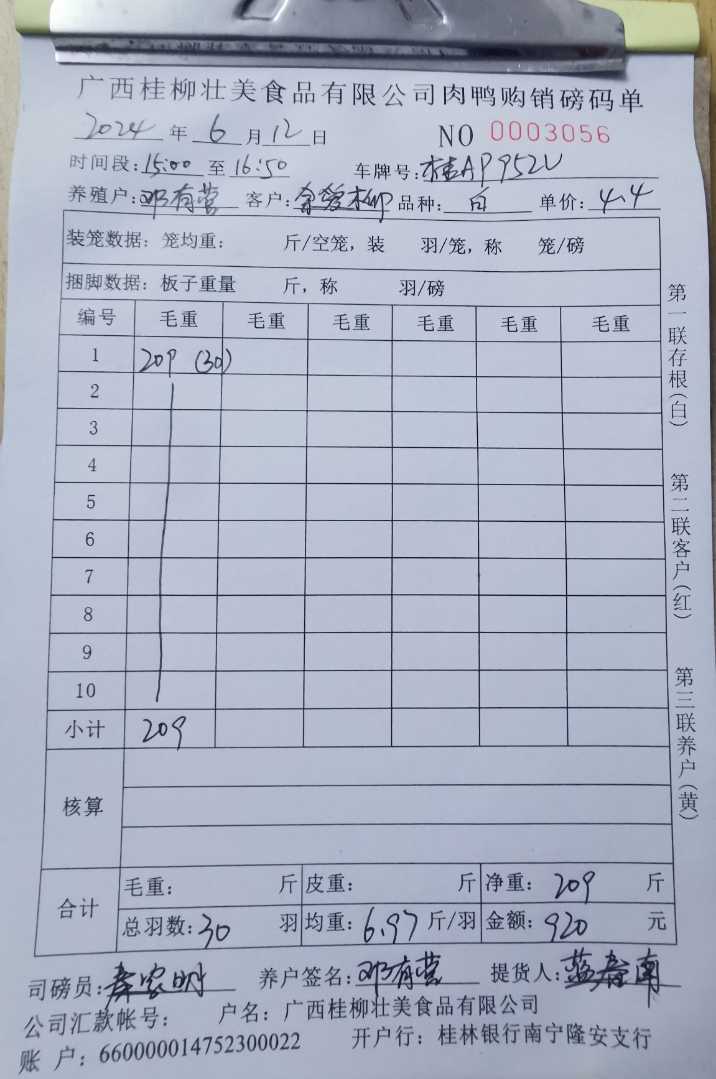 广西桂柳壮美食品有限公司肉鸭购销磅码单
2024 年 6 月 12 日 NO 0003056
时间段:15:00 至 16:50 车牌号:桂AP952V
养殖户:邓有营 客户: 品种: 白 单价: 4.4
装笼数据: 笼均重: 斤/空笼, 装 羽/笼, 称 笼/磅
捆脚数据: 板子重量 斤, 称 羽/磅
编号 毛重 毛重 毛重 毛重 毛重 毛重
1 209 (30)
2
3
4
5
6
7
8
9
10
小计 209
核算
合计 毛重: 斤 皮重: 斤 净重: 209 斤
总羽数:30 羽 均重: 6.97 斤/羽 金额: 920 元
司磅员:秦家明 养户签名:邓有营 提货人:蓝春南
公司汇款帐号: 户名: 广西桂柳壮美食品有限公司
账 户: 660000014752300022 开户行: 桂林银行南宁隆安支行
第一联存根(白)
第二联客户(红)
第三联养户(黄)